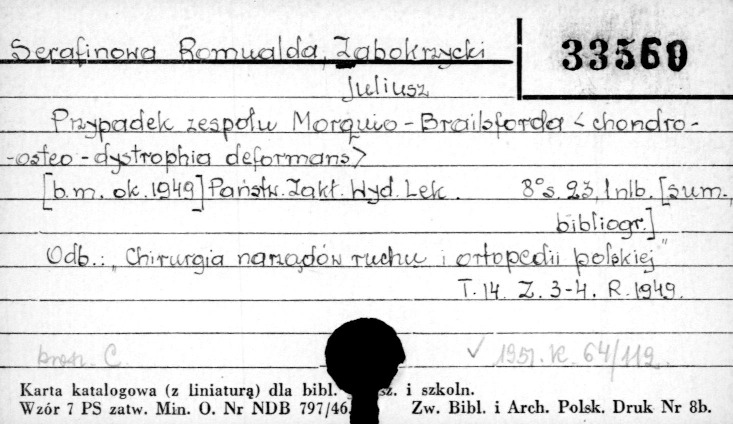 Serafinowa Romualda, Zabokrzycki
Juliusz
33560
Przypadek zespołu Morquio-Brailsforda <chondro-
-osteo-dystrophia deformans>
[b.m. ok. 1949] Państw. Zakł. Wyd. Lek. 8° s. 23, 1 nlb. [sum.,
bibliogr.]
Odb.: „Chirurgia narządów ruchu i ortopedii polskiej"
T. 14. Z. 3-4. R. 1949.
C.
✓ 1951. K. 64/112
Karta katalogowa (z liniaturą) dla bibl. sz. i szkoln.
Wzór 7 PS zatw. Min. O. Nr NDB 797/46. Zw. Bibl. i Arch. Polsk. Druk Nr 8b.